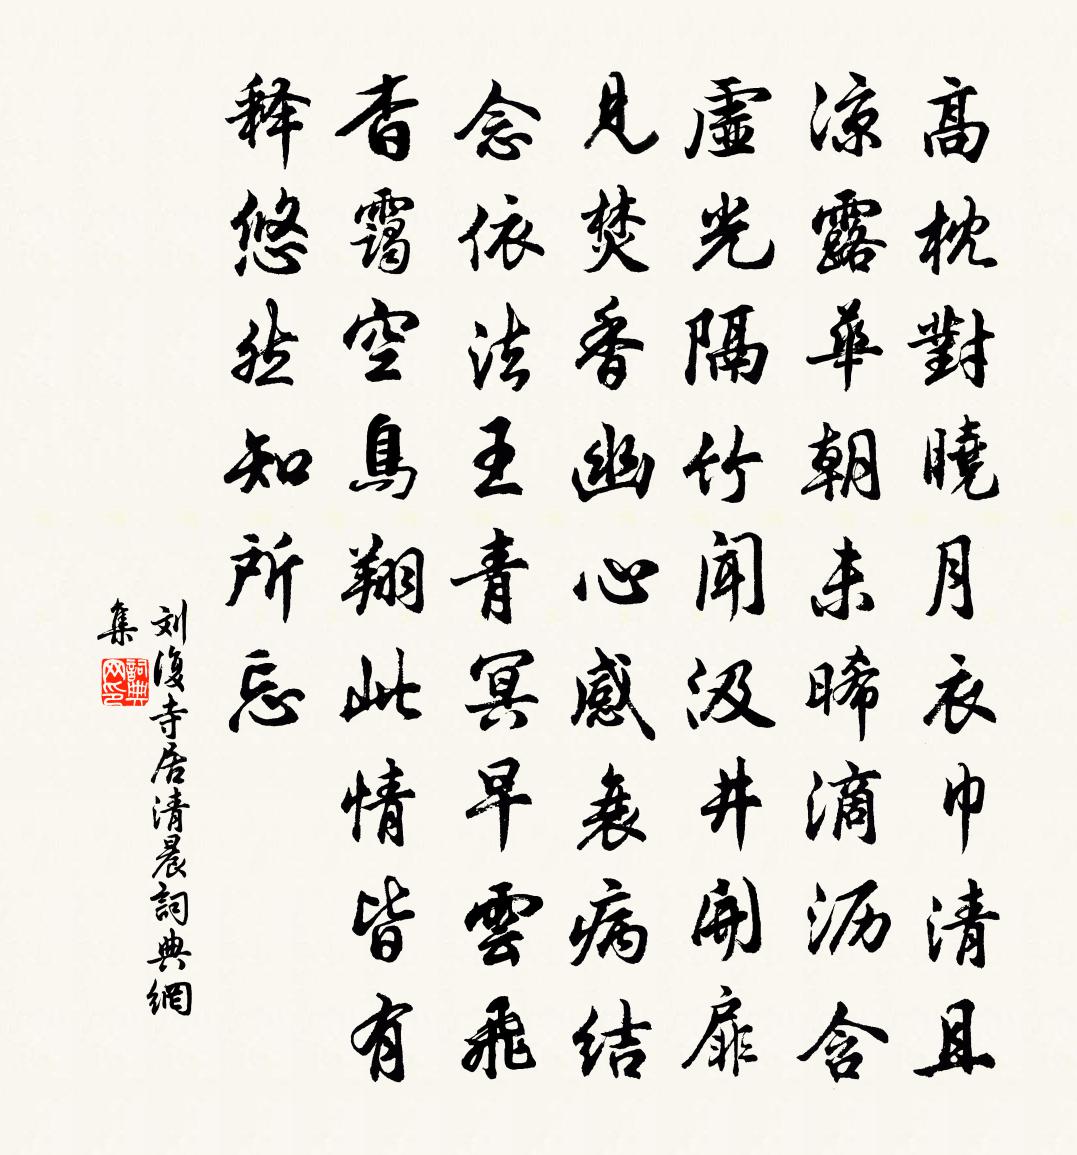 高枕對曉月衣巾清且
涼露華朝未晞滴沥含
虛光隔竹闻汲井開扉
見焚香幽心感衰病结
念依法王青冥早雲飛
杳靄空鳥翔此情皆有
释悠然知所忘
刘復寺居清晨詞典網
集
詞典
网印